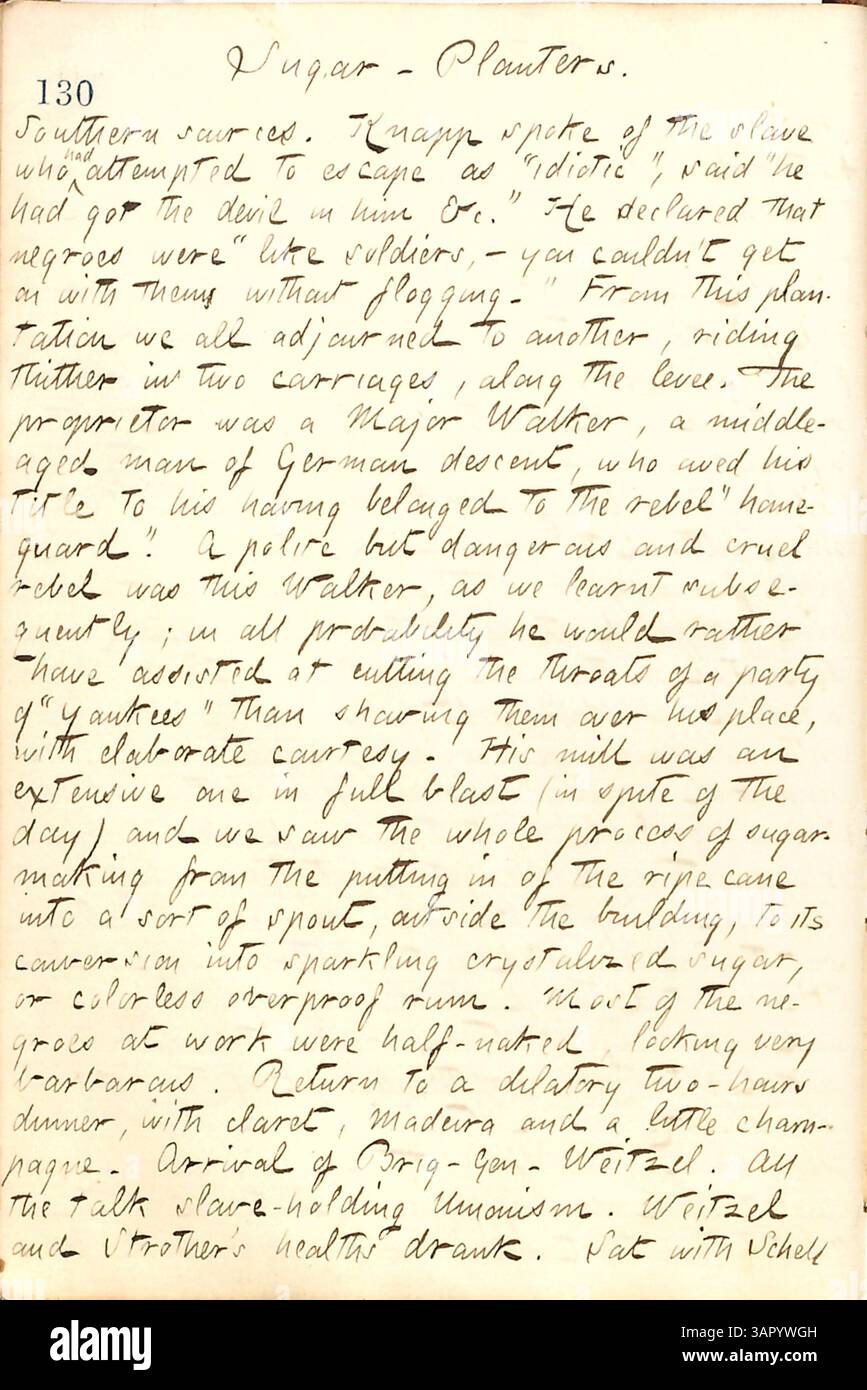 Sugar - Planters.
130
Southern sources. Knapp spoke of the slave
who had attempted to escape as "idiotic", said "he
had got the devil in him &c." He declared that
negroes were "like soldiers, - you couldn't get
on with them without flogging. " From this plan-
tation we all adjourned to another, riding
thither in two carriages, along the levee. The
proprietor was a Major Walker, a middle-
aged man of German descent, who owed his
title to his having belonged to the rebel "home-
guard". A polite but dangerous and cruel
rebel was this Walker, as we learnt subse-
quently; in all probability he would rather
have assisted at cutting the throats of a party
of "Yankees" than showing them over his place,
with elaborate courtesy. His mill was an
extensive one in full blast (in spite of the
day) and we saw the whole process of sugar-
making from the putting in of the ripe cane
into a sort of spout, outside the building, to its
conversion into sparkling crystalized sugar,
or colorless overproof rum. Most of the ne-
groes at work were half-naked, looking very
barbarous. Return to a dilatory two-hours
dinner, with claret, Madeira and a little cham-
pagne. Arrival of Brig-Gen- Weitzel. All
the talk slave-holding Unionism. Weitzel
and Strother's healths drank. Sat with Schell
alamy
Image ID: 3APYWGH
www.alamy.com